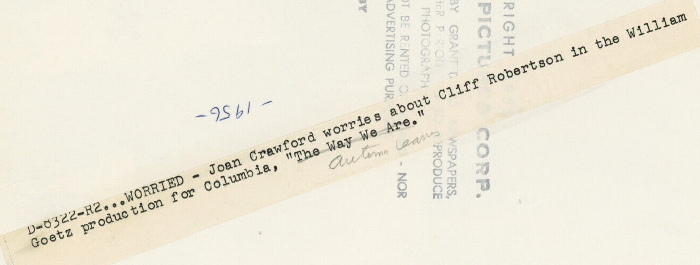 D-8322-R2...WORRIED - Joan Crawford worries about Cliff Robertson in the William
Goetz production for Columbia, "The Way We Are."
autumn leaves
-1956-
RIGHT
PICTU CORP.
BY GRANT
WSPAPERS,
PHOTOGRAPH
PRODUCE
OT BE RENTED O
- NOR
ADVERTISING PUR
BY